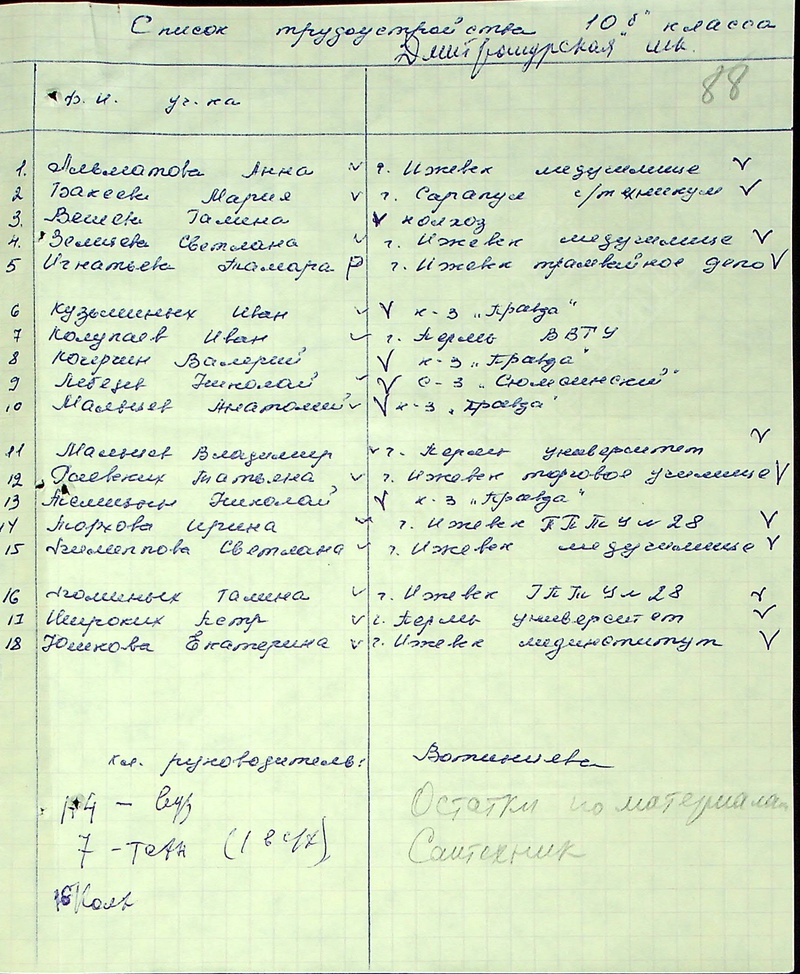 Список трудоустройства 10 "б" класса
Дмитрошурская шк.
88
Ф.И. уч-ка
1. Альматова Анна г. Ижевск медучилище
2 Бакеева Мария г. Сарапул с/техникум
3. Вешева Галина колхоз
4. Зелиева Светлана г. Ижевск медучилище
5 Игнатьева Тамара г. Ижевск трамвайное депо
6 Кузьминых Иван к-з "Правда"
7 Колупаев Иван г. Пермь ВВТУ
8 Кочергин Валерий к-з "Правда"
9 Лебедев Николай с-з "Сюмсинский"
10 Мальцев Анатолий к-з "Правда"
11 Мальцев Владимир г. Пермь университет
12 Татьяна г. Ижевск торговое училище
13 Николай к-з "Правда"
14 Торхова Ирина г. Ижевск ГПТУ № 28
15 Филиппова Светлана г. Ижевск медучилище
16 Фоминых Галина г. Ижевск ГПТУ № 28
17 Широких Петр г. Пермь университет
18 Юшкова Екатерина г. Ижевск мединститут
кл. руководитель: Вотинцева
4 - вуз Остатки по материалам
7 - техн (1 в с/х) Сантехник